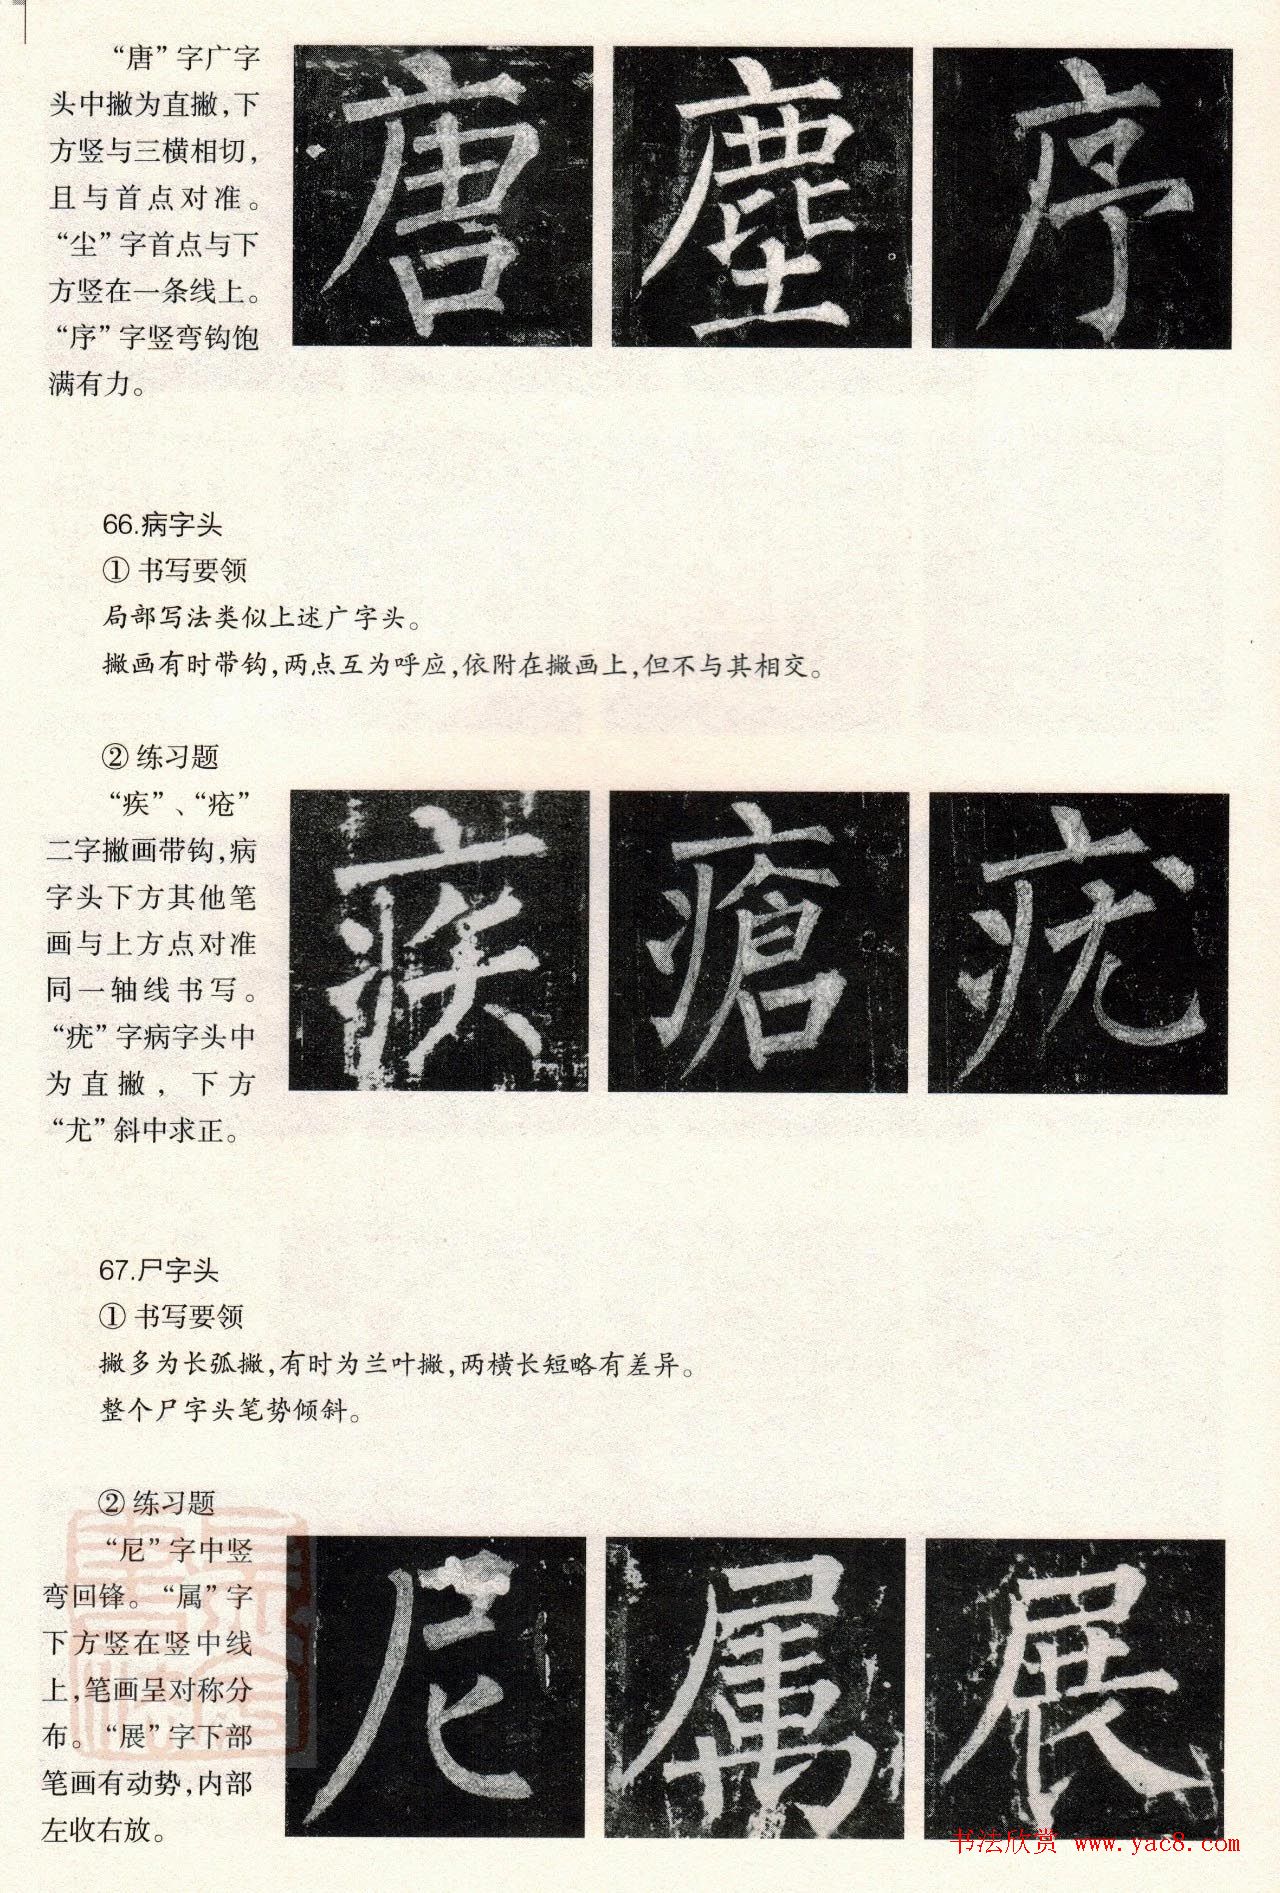 “唐”字广字
头中撇为直撇，下
方竖与三横相切，
且与首点对准。
“尘”字首点与下
方竖在一条线上。
“序”字竖弯钩饱
满有力。
唐 塵 序
66.病字头
① 书写要领
局部写法类似上述广字头。
撇画有时带钩，两点互为呼应，依附在撇画上，但不与其相交。
② 练习题
“疾”、“疮”
二字撇画带钩，病
字头下方其他笔
画与上方点对准
同一轴线书写。
“疣”字病字头中
为直撇，下方
“尤”斜中求正。
疾 瘡 疣
67.尸字头
① 书写要领
撇多为长弧撇，有时为兰叶撇，两横长短略有差异。
整个尸字头笔势倾斜。
② 练习题
“尼”字中竖
弯回锋。“属”字
下方竖在竖中线
上，笔画呈对称分
布。“展”字下部
笔画有动势，内部
左收右放。
尼 属 展
书法欣赏 www.yac8.com